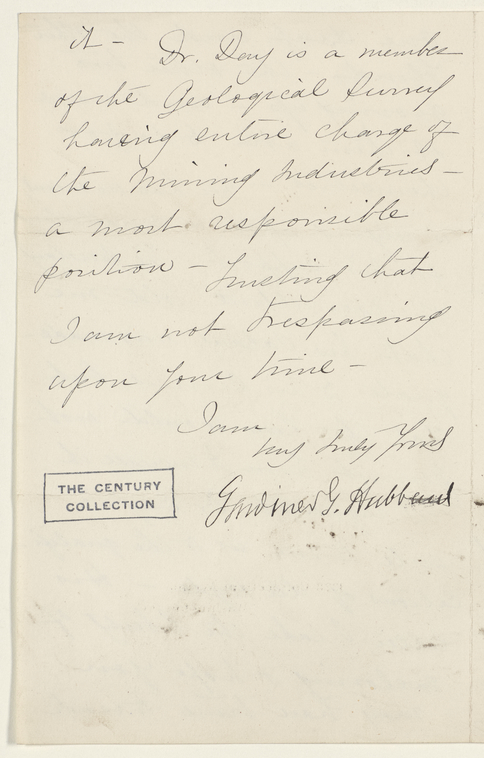 it – Dr. Day is a member
of the Geological Survey
having entire charge of
the Mining Industries –
a most responsible
position – trusting that
I am not trespassing
upon your time –
I am
very truly yours
Gardiner G. Hubbard
THE CENTURY
COLLECTION